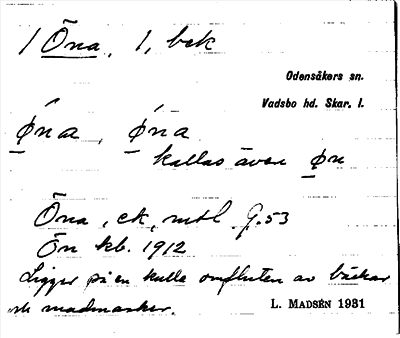 1 Öna, 1, bek
Odensåkers sn.
Vadsbo hd. Skar. l.
Øna, Øna
kallas även Øn
Öna, ek, mtl G.53
Ön kb. 1912
Ligger på en kulle omfluten av bäckar
och madmarker.
L. MADSÉN 1931